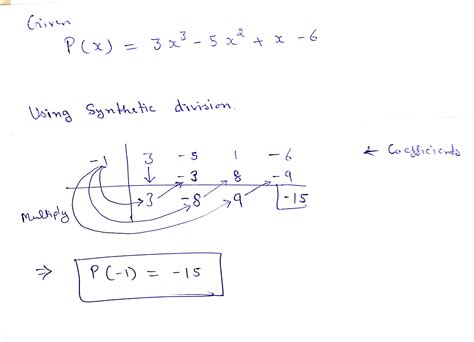 Given
P(x) = 3x³ - 5x² + x - 6
Using Synthetic division.
-1 3 -5 1 -6 ← Coefficients
↓ -3 8 -9
Multiply 3 -8 9 -15
⇒ P(-1) = -15